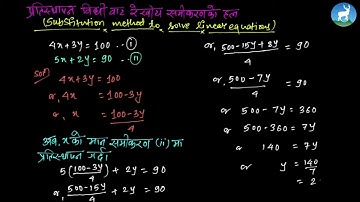 प्रतिस्थापन विधी बाट रेखीय समीकरणको हल
(Substitution method to solve linear equation)
4x+3y=100 -- (i)
5x+2y=90 -- (ii)
Solⁿ
4x+3y=100
or, 4x = 100-3y
or, x = (100-3y)/4
अब, x को मान समीकरण (ii) मा
प्रतिस्थापन गर्दा
5(100-3y)/4 + 2y = 90
or, (500-15y)/4 + 2y = 90
or, (500-15y+8y)/4 = 90
or, (500-7y)/4 = 90
or 500-7y=360
or 500-360=7y
or 140 = 7y
or y = 140/7
= 2